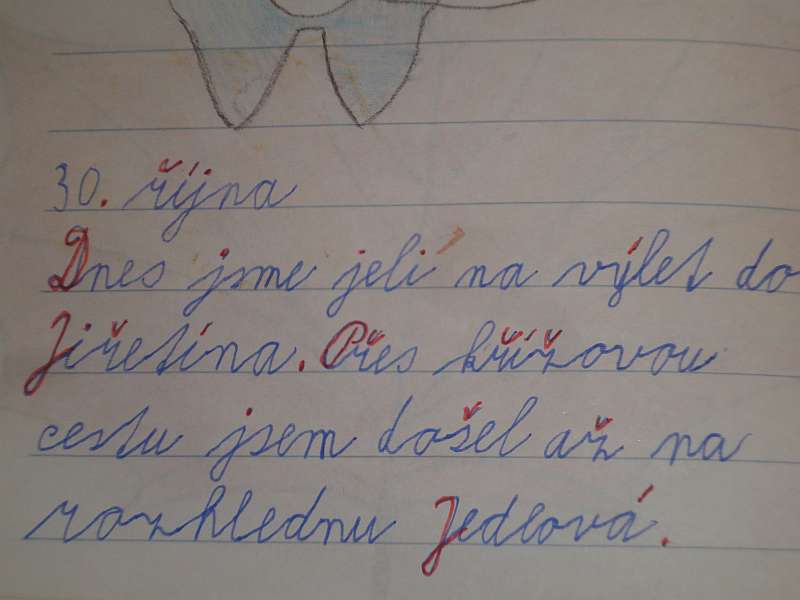 30. října
Dnes jsme jeli na výlet do
Jiřetína. Přes křížovou
cestu jsem došel až na
rozhlednu Jedlová.